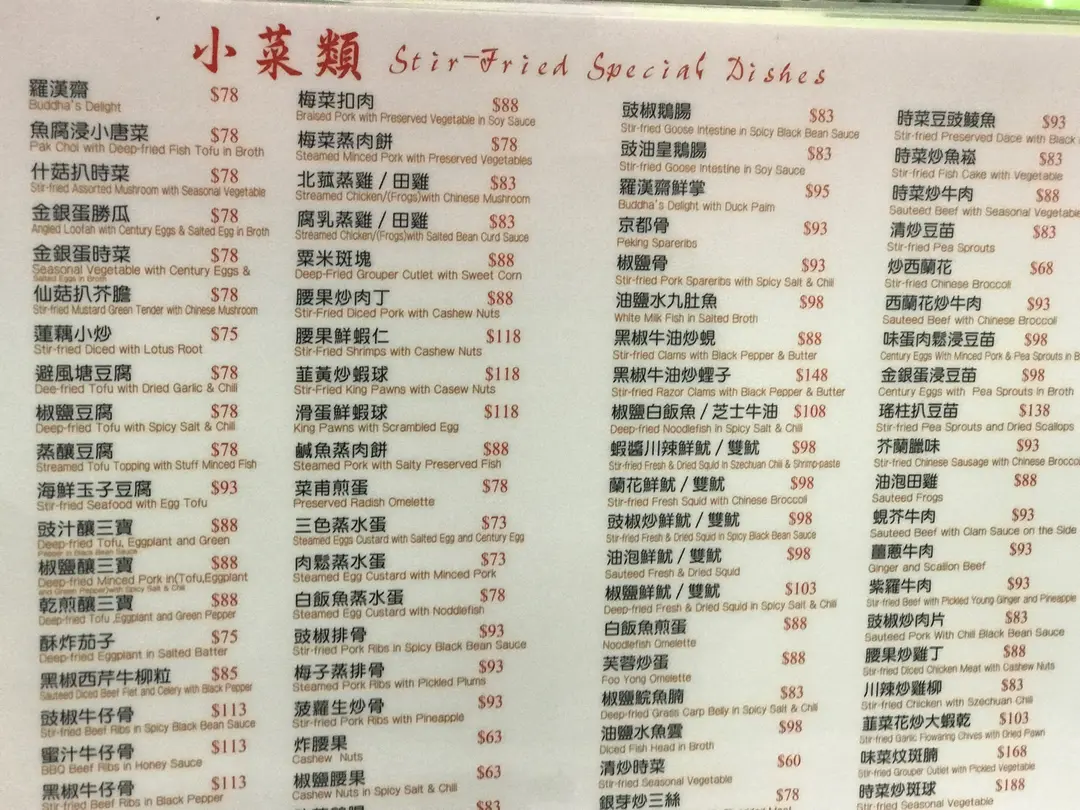 小菜類 Stir-Fried Special Dishes
羅漢齋 $78
Buddha's Delight
魚腐浸小唐菜 $78
Pak Choi with Deep-fried Fish Tofu in Broth
什菇扒時菜 $78
Stir-fried Assorted Mushroom with Seasonal Vegetable
金銀蛋勝瓜 $78
Angled Loofah with Century Eggs & Salted Egg in Broth
金銀蛋時菜 $78
Seasonal Vegetable with Century Eggs &
Salted Eggs in Broth
仙菇扒芥膽 $78
Stir-fried Mustard Green Tender with Chinese Mushroom
蓮藕小炒 $75
Stir-fried Diced with Lotus Root
避風塘豆腐 $78
Dee-fried Tofu with Dried Garlic & Chili
椒鹽豆腐 $78
Deep-fried Tofu with Spicy Salt & Chili
蒸釀豆腐 $78
Streamed Tofu Topping with Stuff Minced Fish
海鮮玉子豆腐 $93
Stir-fried Seafood with Egg Tofu
豉汁釀三寶 $88
Deep-fried Tofu, Eggplant and Green
Pepper in Black Bean Sauce
椒鹽釀三寶 $88
Deep-fried Minced Pork in(Tofu,Eggplant
and Green Pepper)with Spicy Salt & Chili
乾煎釀三寶 $88
Deep-fried Tofu ,Eggplant and Green Pepper
酥炸茄子 $75
Deep-fried Eggplant in Salted Batter
黑椒西芹牛柳粒 $85
Sauteed Diced Beef Filet and Celery with Black Pepper
豉椒牛仔骨 $113
Stir-fried Beef Ribs in Spicy Black Bean Sauce
蜜汁牛仔骨 $113
BBQ Beef Ribs in Honey Sauce
黑椒牛仔骨 $113
Stir-fried Beef Ribs in Black Pepper
梅菜扣肉 $88
Braised Pork with Preserved Vegetable in Soy Sauce
梅菜蒸肉餅 $78
Steamed Minced Pork with Preserved Vegetables
北菰蒸雞 / 田雞 $83
Streamed Chicken/(Frogs)with Chinese Mushroom
腐乳蒸雞 / 田雞 $83
Streamed Chicken/(Frogs)with Salted Bean Curd Sauce
粟米斑塊 $88
Deep-Fried Grouper Cutlet with Sweet Corn
腰果炒肉丁 $88
Stir-Fried Diced Pork with Cashew Nuts
腰果鮮蝦仁 $118
Stir-Fried Shrimps with Cashew Nuts
韮黃炒蝦球 $118
Stir-Fried King Pawns with Casew Nuts
滑蛋鮮蝦球 $118
King Pawns with Scrambled Egg
鹹魚蒸肉餅 $88
Steamed Pork with Salty Preserved Fish
菜甫煎蛋 $78
Preserved Radish Omelette
三色蒸水蛋 $73
Steamed Eggs Custard with Salted Egg and Century Egg
肉鬆蒸水蛋 $73
Steamed Egg Custard with Minced Pork
白飯魚蒸水蛋 $78
Steamed Egg Custard with Noddlefish
豉椒排骨 $93
Stir-fried Pork Ribs in Spicy Black Bean Sauce
梅子蒸排骨 $93
Steamed Pork Ribs with Pickled Plums
菠蘿生炒骨 $93
Stir-fried Pork Ribs with Pineapple
炸腰果 $63
Cashew Nuts
椒鹽腰果 $63
Cashew Nuts in Spicy Salt & Chili
$83
豉椒鵝腸 $83
Stir-fried Goose Intestine in Spicy Black Bean Sauce
豉油皇鵝腸 $83
Stir-fried Goose Intestine in Soy Sauce
羅漢齋鮮掌 $95
Buddha's Delight with Duck Palm
京都骨 $93
Peking Spareribs
椒鹽骨 $93
Stir-fried Pork Spareribs with Spicy Salt & Chili
油鹽水九肚魚 $98
White Milk Fish in Salted Broth
黑椒牛油炒蜆 $88
Stir-fried Clams with Black Pepper & Butter
黑椒牛油炒蟶子 $148
Stir-fried Razor Clams with Black Pepper & Butter
椒鹽白飯魚 / 芝士牛油 $108
Deep-fried Noodlefish in Spicy Salt & Chili
蝦醬川辣鮮魷 / 雙魷 $98
Stir-fried Fresh & Dried Squid in Szechuan Chili & Shrimp-paste
蘭花鮮魷 / 雙魷 $98
Stir-fried Fresh Squid with Chinese Broccoli
豉椒炒鮮魷 / 雙魷 $98
Stir-fried Fresh & Dried Squid in Spicy Black Bean Sauce
油泡鮮魷 / 雙魷 $98
Sauteed Fresh & Dried Squid
椒鹽鮮魷 / 雙魷 $103
Deep-fried Fresh & Dried Squid in Spicy Salt & Chili
白飯魚煎蛋 $88
Noodlefish Omelette
芙蓉炒蛋 $88
Foo Yong Omelette
椒鹽鯇魚腩 $83
Deep-fried Grass Carp Belly in Spicy Salt & Chili
油鹽水魚雲 $98
Diced Fish Head in Broth
清炒時菜 $60
Stir-fried Seasonal Vegetable
銀芽炒三絲 $78
時菜豆豉鯪魚 $93
Stir-fried Preserved Dace with Black
時菜炒魚崧 $83
Stir-fried Fish Cake with Vegetable
時菜炒牛肉 $88
Sauteed Beef with Seasonal Vegetable
清炒豆苗 $83
Stir-fried Pea Sprouts
炒西蘭花 $68
Stir-fried Chinese Broccoli
西蘭花炒牛肉 $93
Sauteed Beef with Chinese Broccoli
味蛋肉鬆浸豆苗 $98
Century Eggs With Minced Pork & Pea Sprouts in B
金銀蛋浸豆苗 $98
Century Eggs with Pea Sprouts in Broth
瑤柱扒豆苗 $138
Stir-fried Pea Sprouts and Dried Scallops
芥蘭臘味 $93
Stir-fried Chinese Sausage with Chinese Brocco
油泡田雞 $88
Sauteed Frogs
蜆芥牛肉 $93
Sauteed Beef with Clam Sauce on the Side
薑蔥牛肉 $93
Ginger and Scallion Beef
紫羅牛肉 $93
Stir-fried Beef with Pickled Young Ginger and Pineapple
豉椒炒肉片 $83
Sauteed Pork With Chili Black Bean Sauce
腰果炒雞丁 $88
Stir-fried Diced Chicken Meat with Cashew Nuts
川辣炒雞柳 $83
Stir-fried Chicken with Szechuan Chili
韮菜花炒大蝦乾 $103
Stir-fried Garlic Flowering Chives with Dried Pawn
味菜炆斑腩 $168
Stir-fried Grouper Outlet with Pickled Vegetable
時菜炒斑球 $188
Stir-fried Seasonal Vegetable